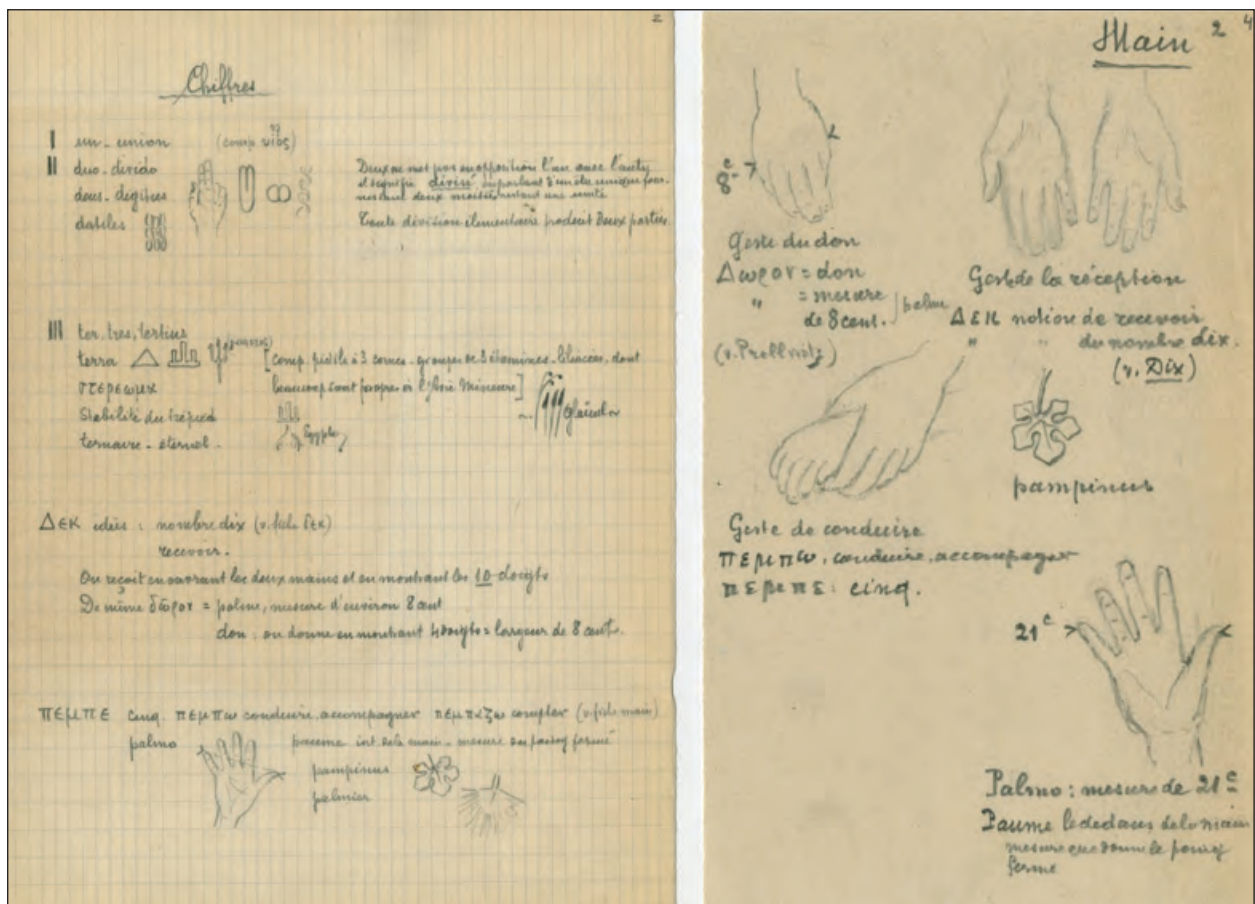 2
Chiffres
I un - union (comp. υἱός)
II duo - divido
deux - degitus
dabiles
Deux ne met pas en opposition l'un avec l'autre
il signifie divisé
deux moitiés une unité
Toute division élémentaire produit Deux parties.
III ter, tres, tertius
terra [comp. pistile à 3 cornes - groupes de 3 étamines - liliacées, dont
beaucoup sont propres à l'Asie Mineure]
Stabilité du trépied
glaïeul
ternaire - éternel. Egypte
ΔΕΚ idées : nombre dix (v. δεκ)
recevoir.
On reçoit en ouvrant les deux mains et en montrant les 10 doigts
De même δῶρον = palme, mesure d'environ 8 cent
don : on donne en montrant 4 doigts = largeur de 8 cent.
ΠΕΜΠΕ cinq. πεμπω conduire, accompagner πεμπαζω compter (v. main)
palmo paume int. de la main - mesure du poing fermé
pampinus
palmier
2 4
Main
8 c
Geste du don
Δωρον = don
" = mesure
de 8 cent.
(v. Prellwitz)
Geste de la réception
ΔΕΚ notion de recevoir
" " du nombre dix.
(v. Dix)
pampinus
Geste de conduire
πεμπω, conduire, accompagner
πεμπε : cinq.
21 c
Palmo : mesure de 21 c
Paume le dedans de la main
mesure que donne le poing
fermé